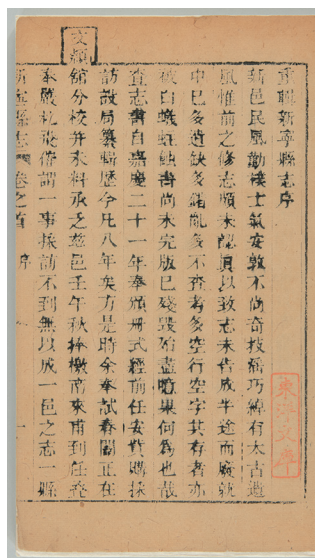 重輯新寧縣志序
新邑民風勤樸士氣安敦不尚奇技淫巧綽有太古遺
風惟前之修志頗未認真以致志未告成半途而廢就
中已多遺缺多錯亂多不齊者多空行空字其存者亦
被白蟻蛀蝕書尚未完版已殘毀殆盡噫果何為也哉
查志書自嘉慶二十一年奉頒冊式經前任安貲購採
訪設局纂輯歷今凡八年矣方是時余奉試春闈正在
舘分校幷未料承乏茲邑壬午秋捧檄南來甫到任飛
奉嚴札飛催謂一事採訪不到無以成一邑之志一縣
新寧縣志 卷之首 序 一
東洋文庫